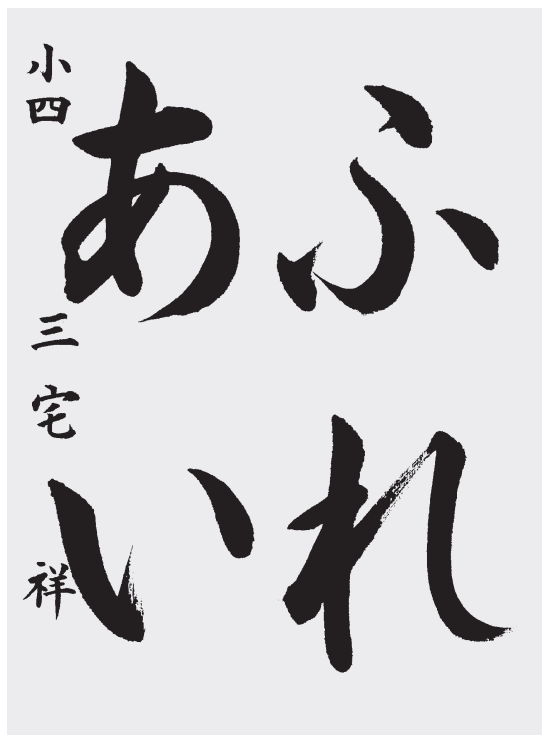 ふれ
あい
小四 三宅 祥